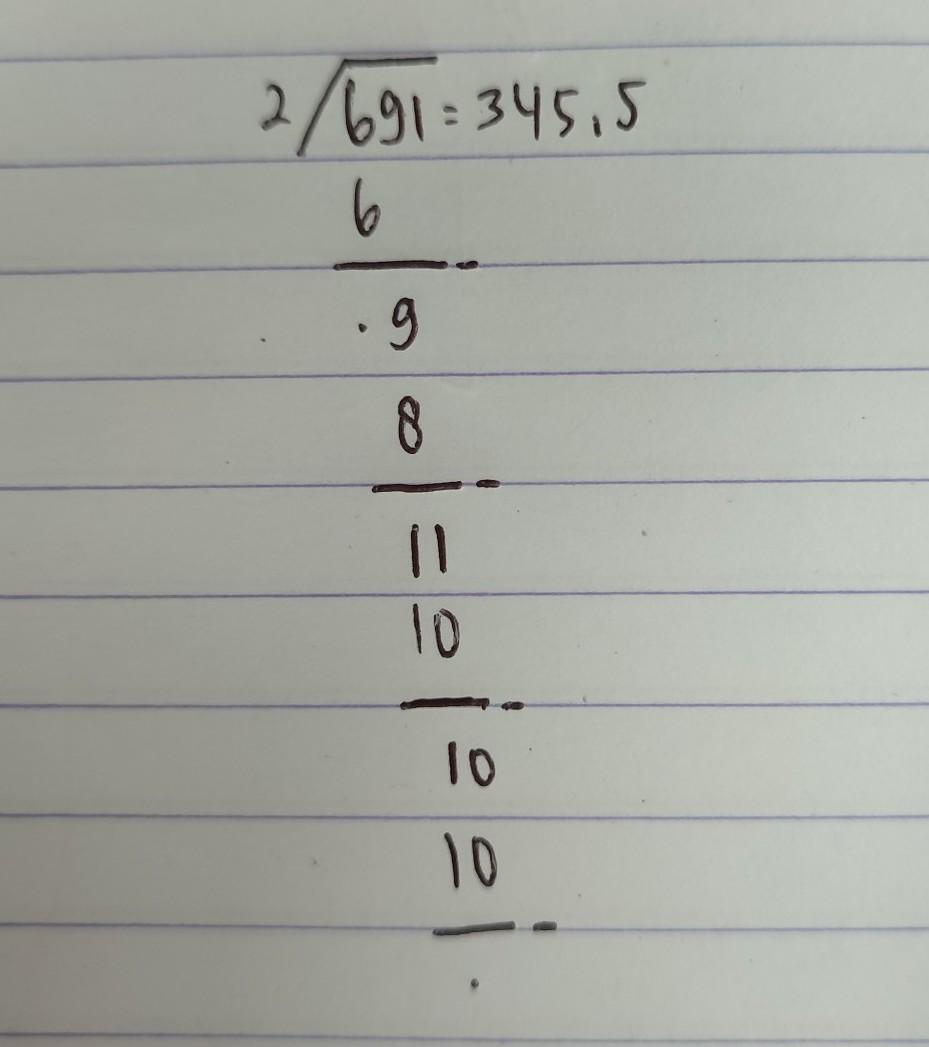 2/691=345.5
6
-
. 9
8
-
11
10
-
10
10
-
.